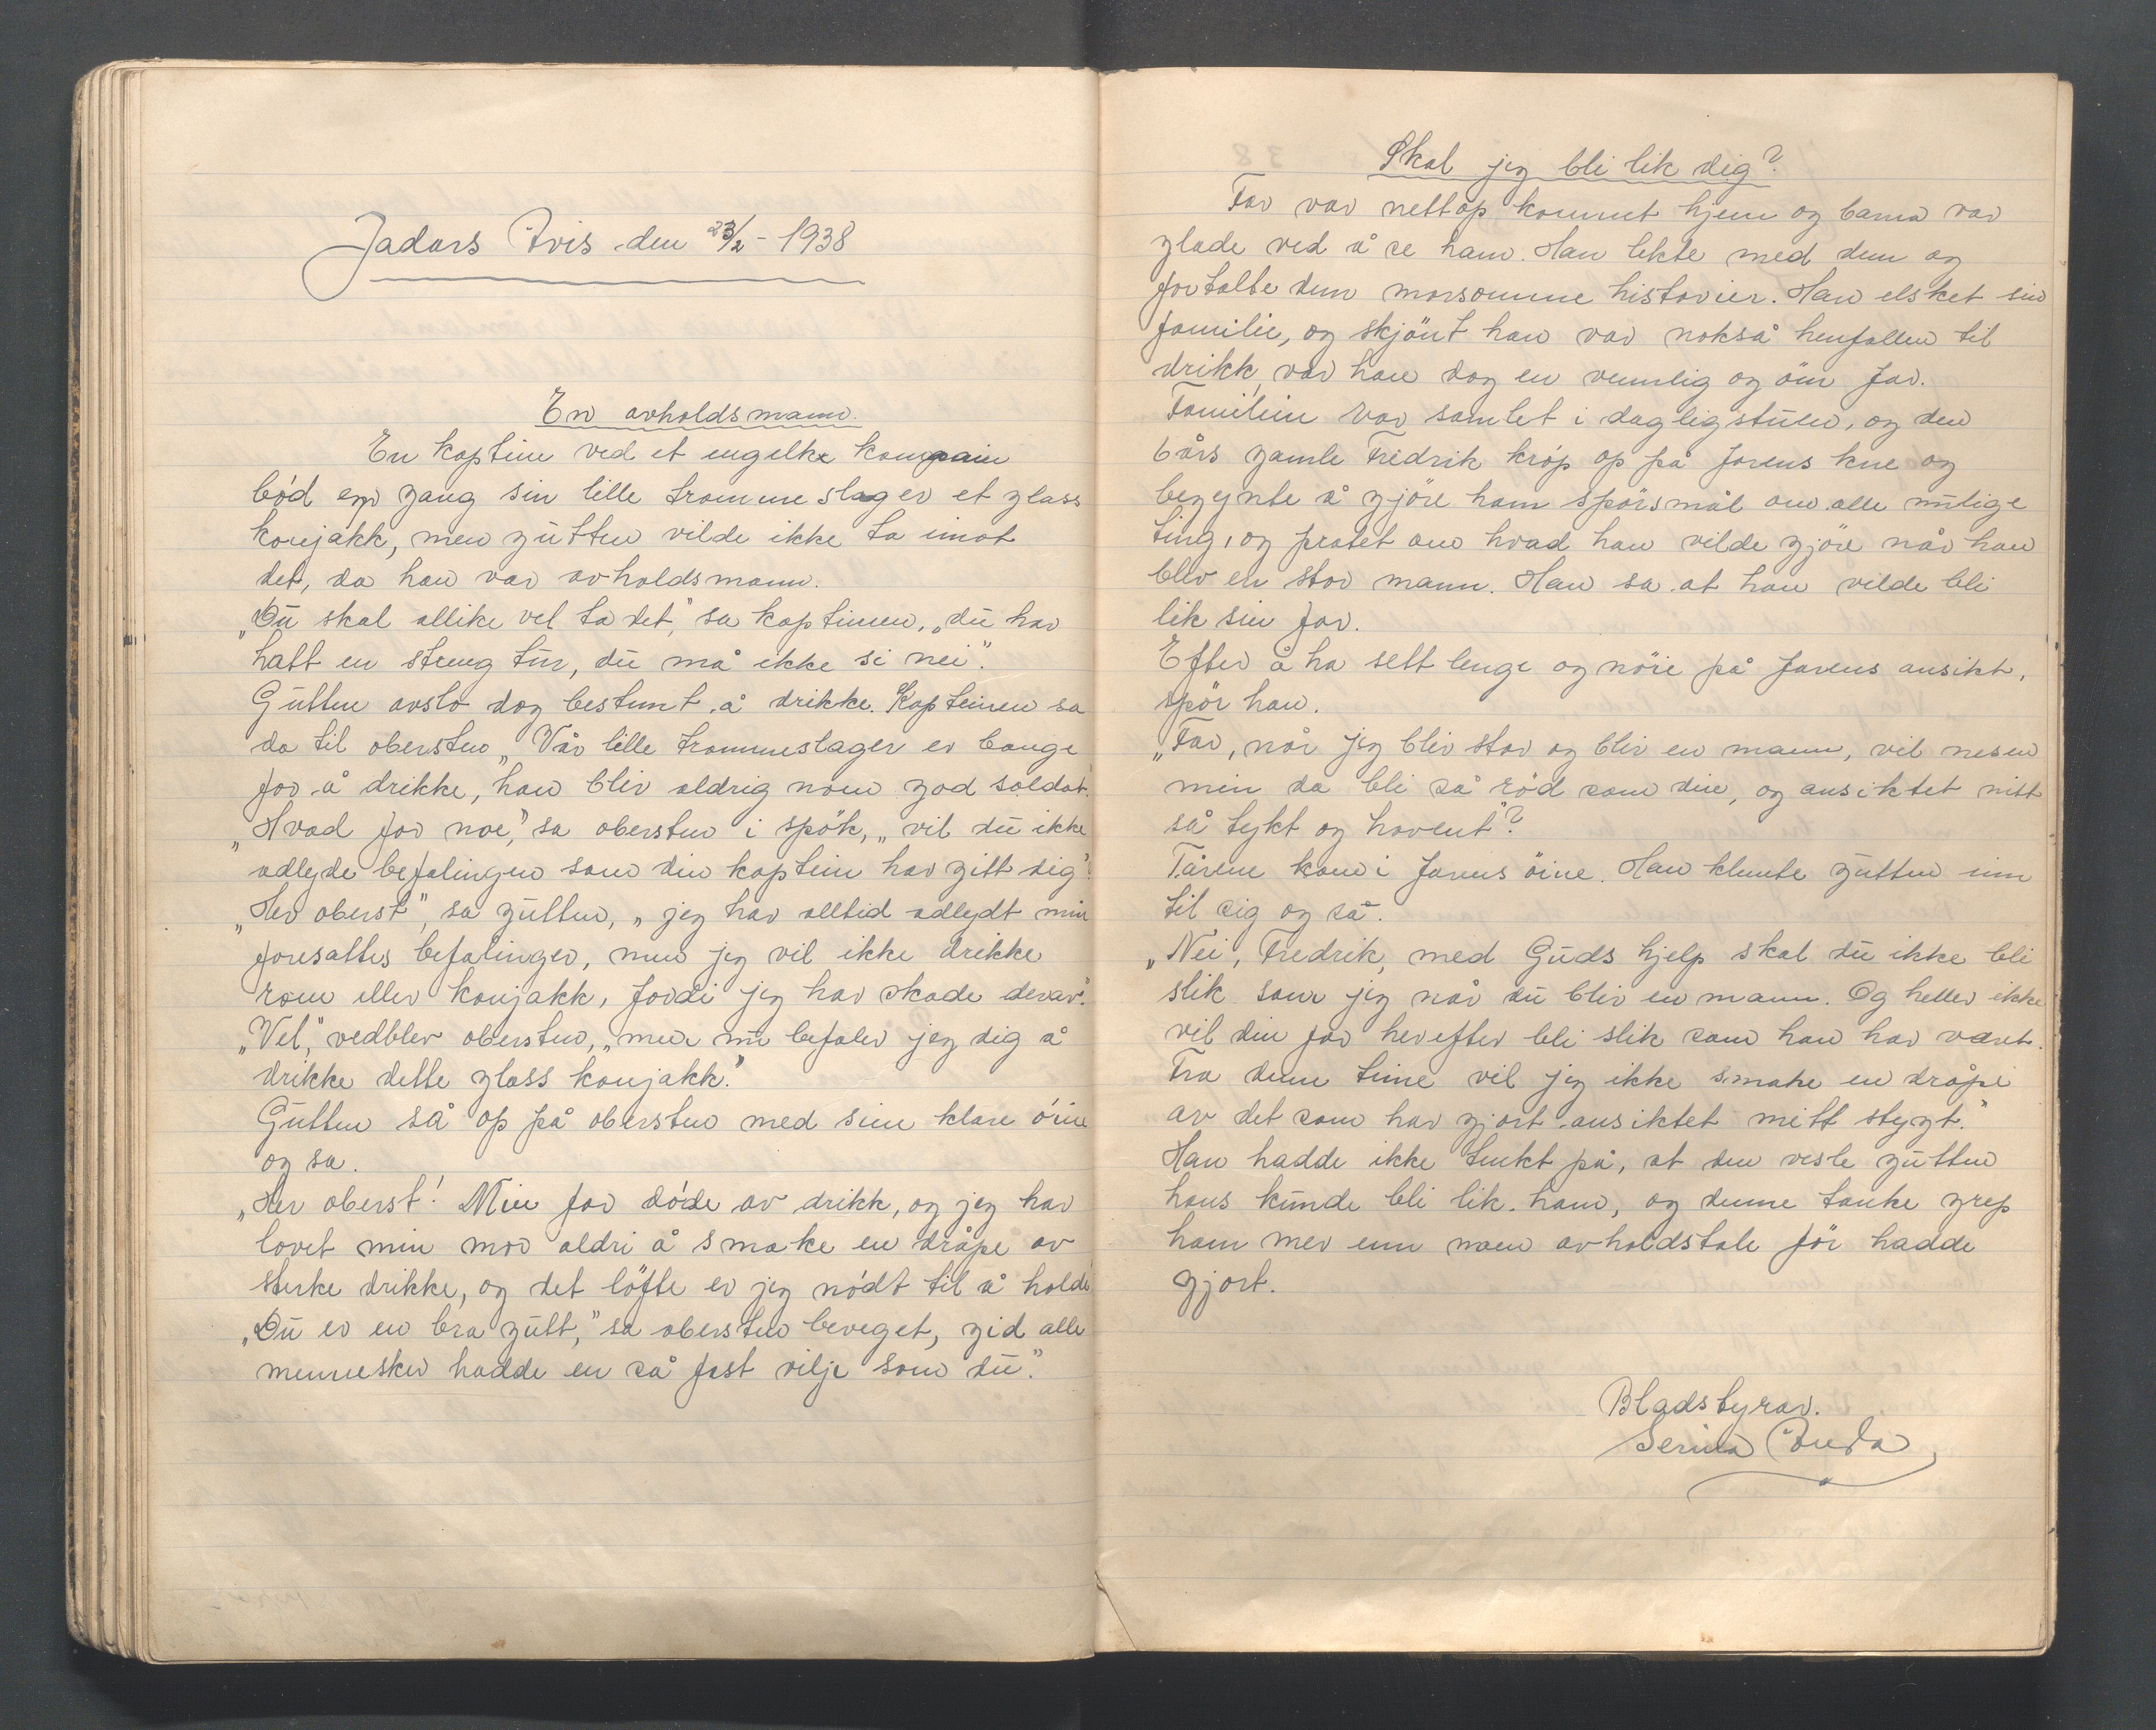 Jadars Avis den 23/2 - 1938
En avholdsmann.
En kaptein ved et engelke kompain
bød en gang sin lille trommeslager et glass
konjakk, men gutten vilde ikke ta imot
det, da han var avholdsmann.
„Du skal allike vel ta det," sa kapteinen, „du har
hatt en streng tur, du må ikke si nei".
Gutten avslo dog bestemt å drikke. Kapteinen sa
da til obersten „Vår lille trommeslager er bange
for å drikke, han blir aldrig noen god soldat."
„Hvad for noe," sa obersten i spøk, „vil du ikke
adlyde befalingen som din kaptein har gitt dig"?
„Her oberst", sa gutten, „jeg har alltid adlydt min
foresattes befalinger, men jeg vil ikke drikke
rom eller konjakk, fordi jeg har skade derav".
„Vel," vedblev obersten, „men nu befaler jeg dig å
drikke dette glass konjakk."
Gutten så op på obersten med sine klare öine
og sa.
„Her oberst! Min far døde av drikk, og jeg har
lovet min mor aldri å smake en dråpe av
sterke drikke, og det löfte er jeg nødt til å holde"
„Du er en bra gutt," sa obersten beveget, gid alle
mennesker hadde en så fast vilje som du."
Skal jeg bli lik dig?
Far var nettop kommet hjem og barna var
glade ved å se ham. Han lekte med dem og
fortalte dem morsomme historier. Han elsket sin
familie, og skjönt han var nokså henfallen til
drikk, var han dog en vennlig og öm far.
Familien var samlet i dagligstuen, og den
6 års gamle Fredrik krøp op på farens kne og
begynte å gjöre ham spörsmål om alle mulige
ting, og pratet om hvad han vilde gjöre når han
blev en stor mann. Han sa at han vilde bli
lik sin far.
Efter å ha sett lenge og nöie på farens ansikt,
spör han.
„Far, når jeg blir stor og blir en mann, vil nesen
min da bli så röd som din, og ansiktet mitt
så tykt og hovent"?
Tårene kom i farens öine. Han klemte gutten inn
til sig og sa.
„Nei, Fredrik, med Guds hjelp skal du ikke bli
slik som jeg når du blir en mann. Og heller ikke
vil din far herefter bli slik som han har været.
Fra denne time vil jeg ikke smake en dråpe
av det som har gjort ansiktet mitt stygt."
Han hadde ikke tenkt på, at den vesle gutten
hans kunde bli lik ham, og denne tanke grep
ham mer enn noen avholdstale för hadde
gjort.
Bladstyrar.
Serina